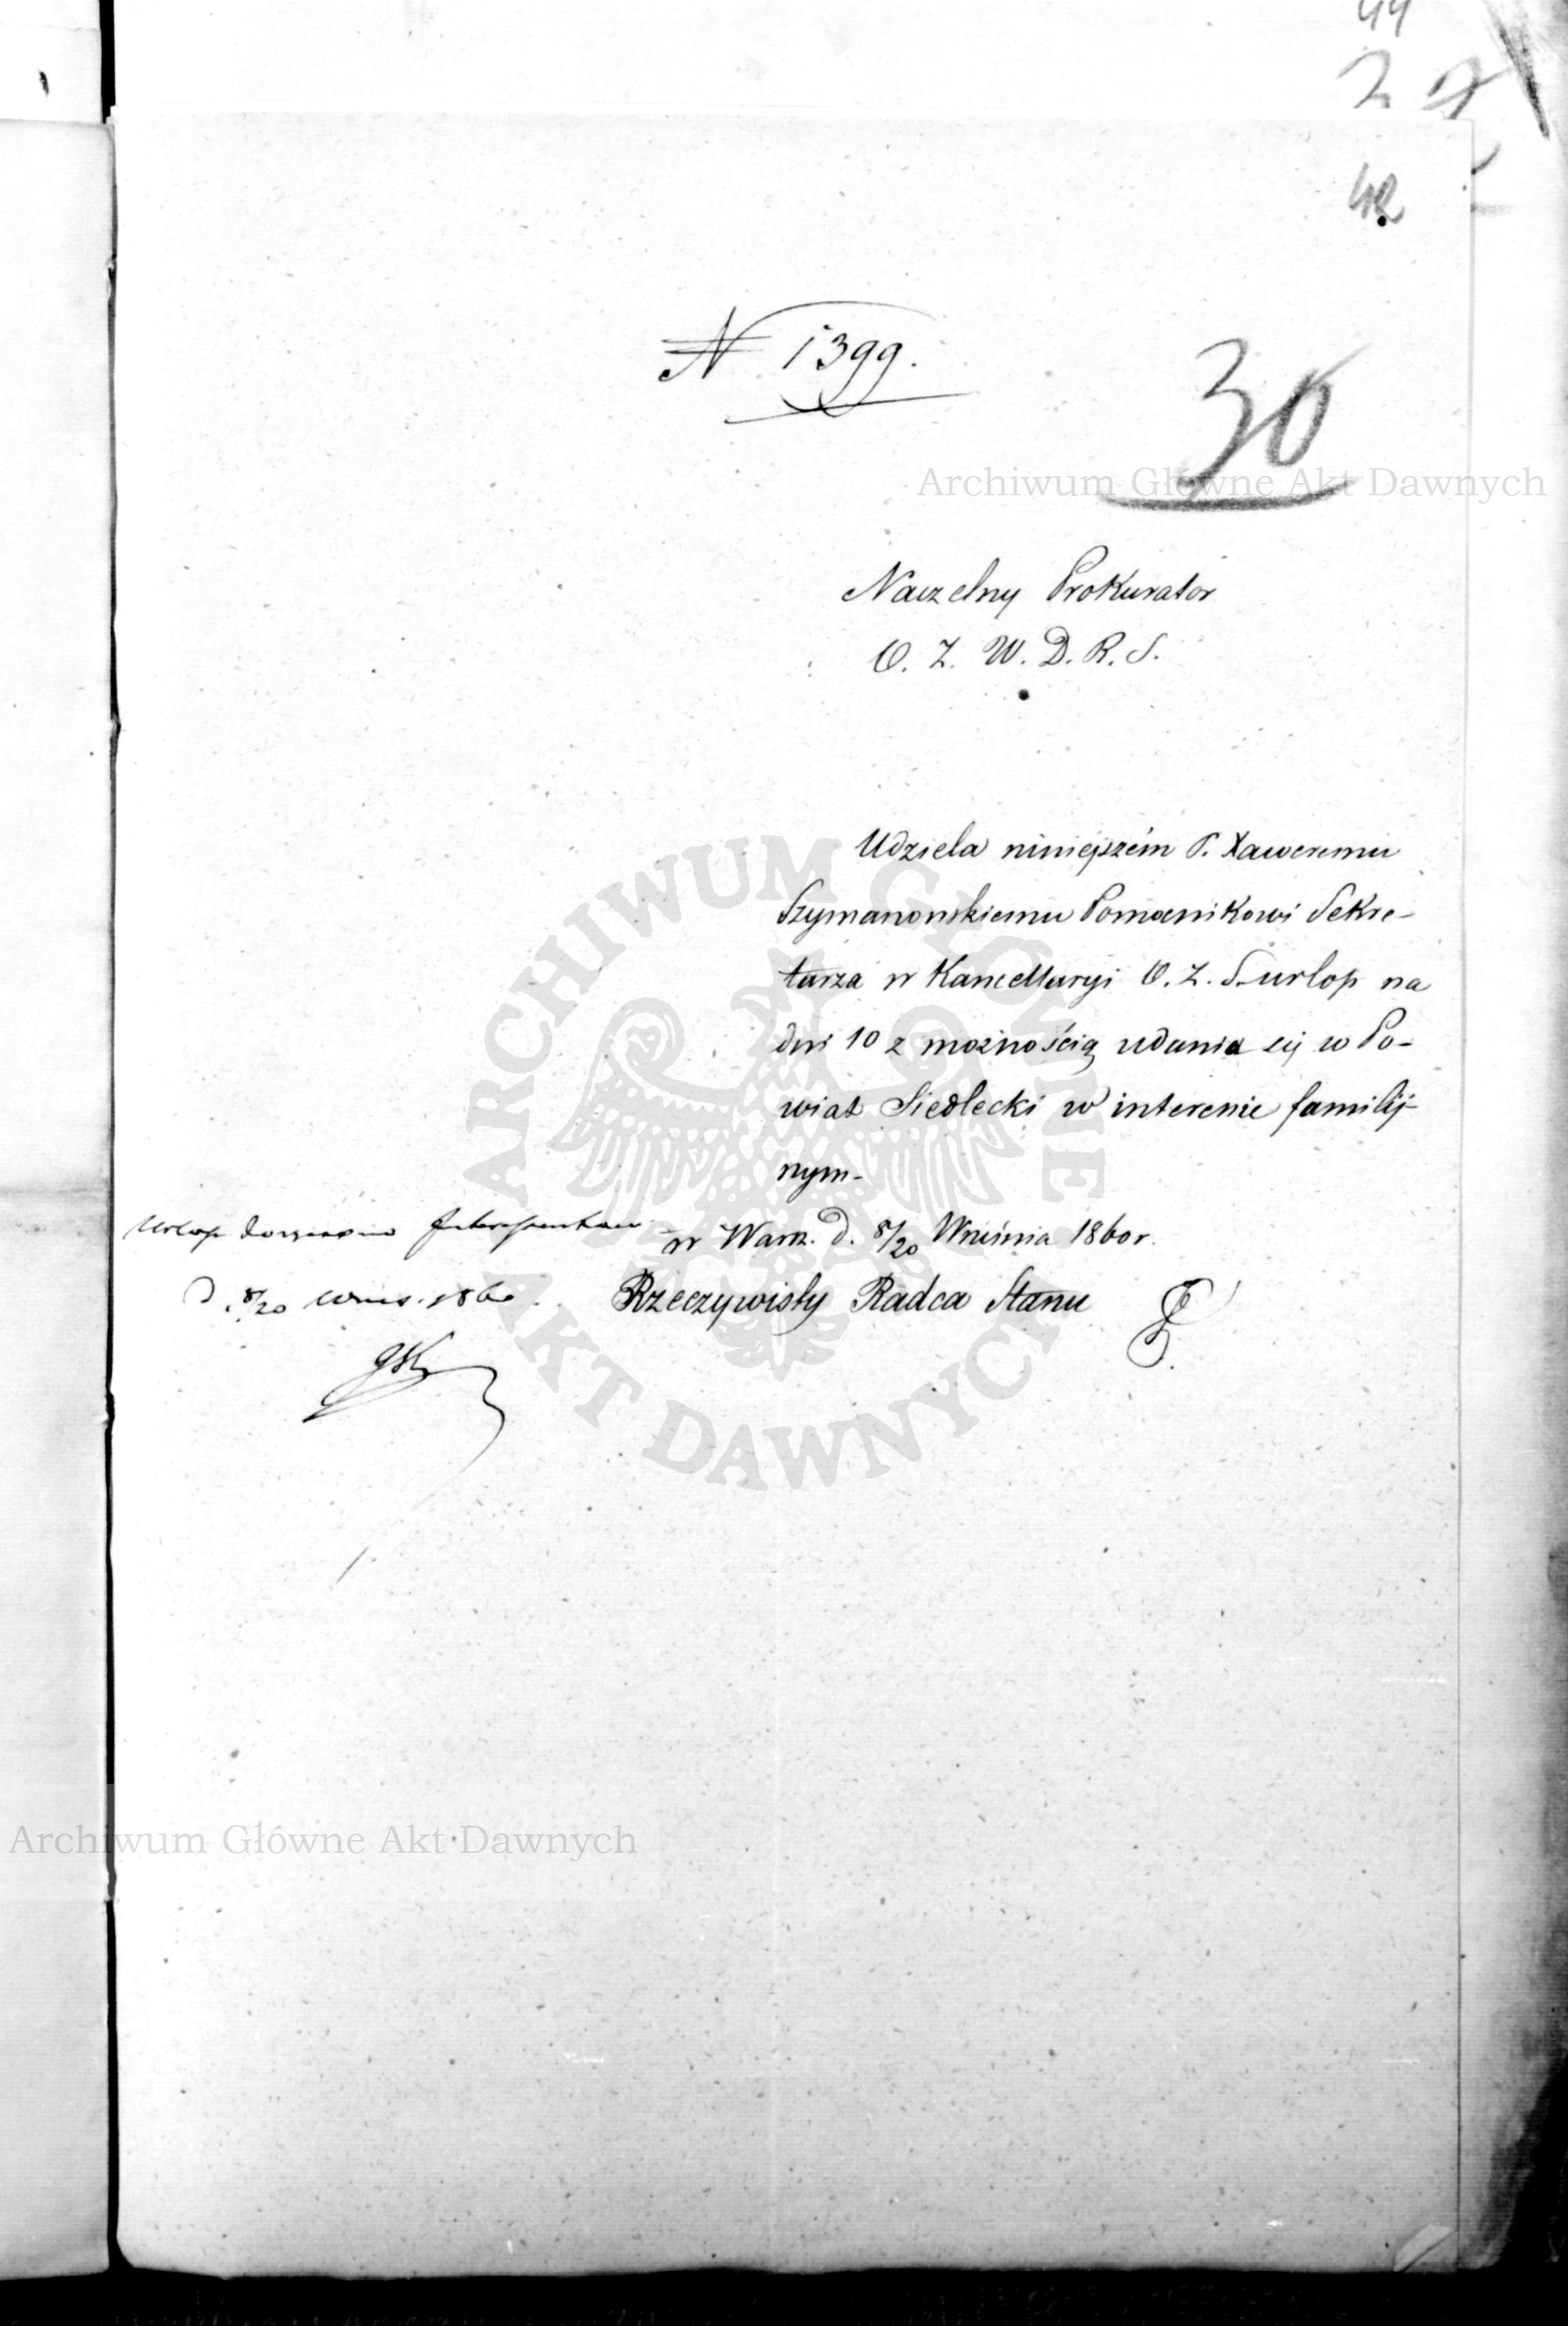 44
2
42
N 1399.
30
Archiwum Główne Akt Dawnych
Naczelny Prokurator
O. Z. W. D. R. S.
Udziela niniejszém P. Xaweremu
Szymanowskiemu Pomocnikowi Sekre-
tarza w Kancellaryi O. Z. S. urlop na
dni 10 z możnością udania się w Po-
wiat Siedlecki w interesie familij-
nym.
w Warsz. d. 8/20 Września 1860 r.
Urlop doręczono Interessentowi
d. 8/20 Wrześ. 1860
Rzeczywisty Radca Stanu
ARCHIWUM GŁÓWNE AKT DAWNYCH
Archiwum Główne Akt Dawnych